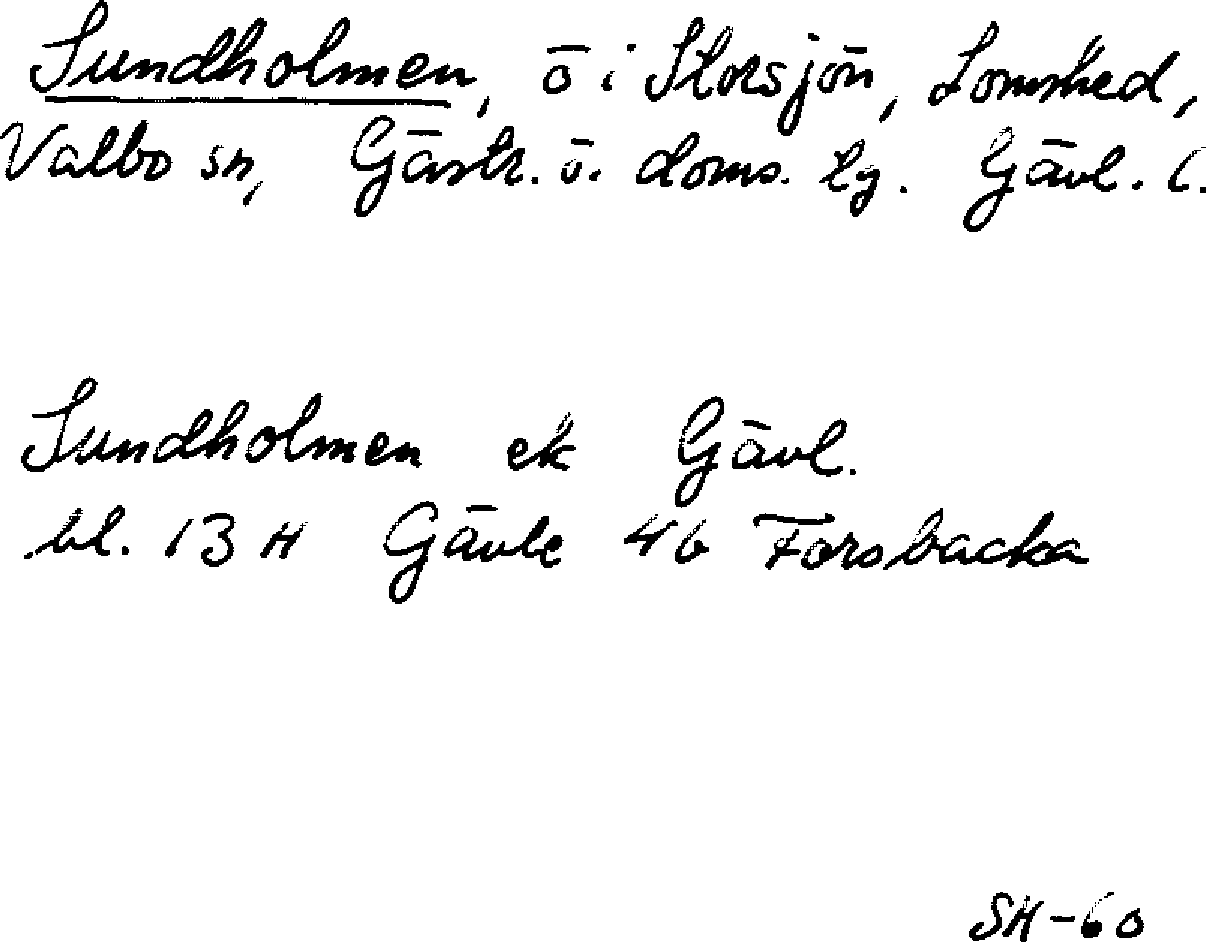 Sundholmen, ö i Storsjön, Lomshed,
Valbo sn, Gästr. ö. doms. lg. Gävl. l.
Sundholmen ek Gävl.
bl. 13 H Gävle 4b Forsbacka
SH-60